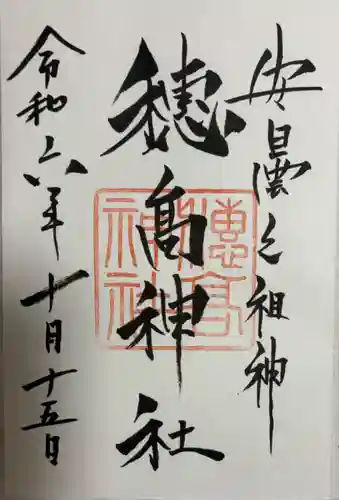 安曇之祖神
穂高神社
令和六年十月十五日
穂高
神社